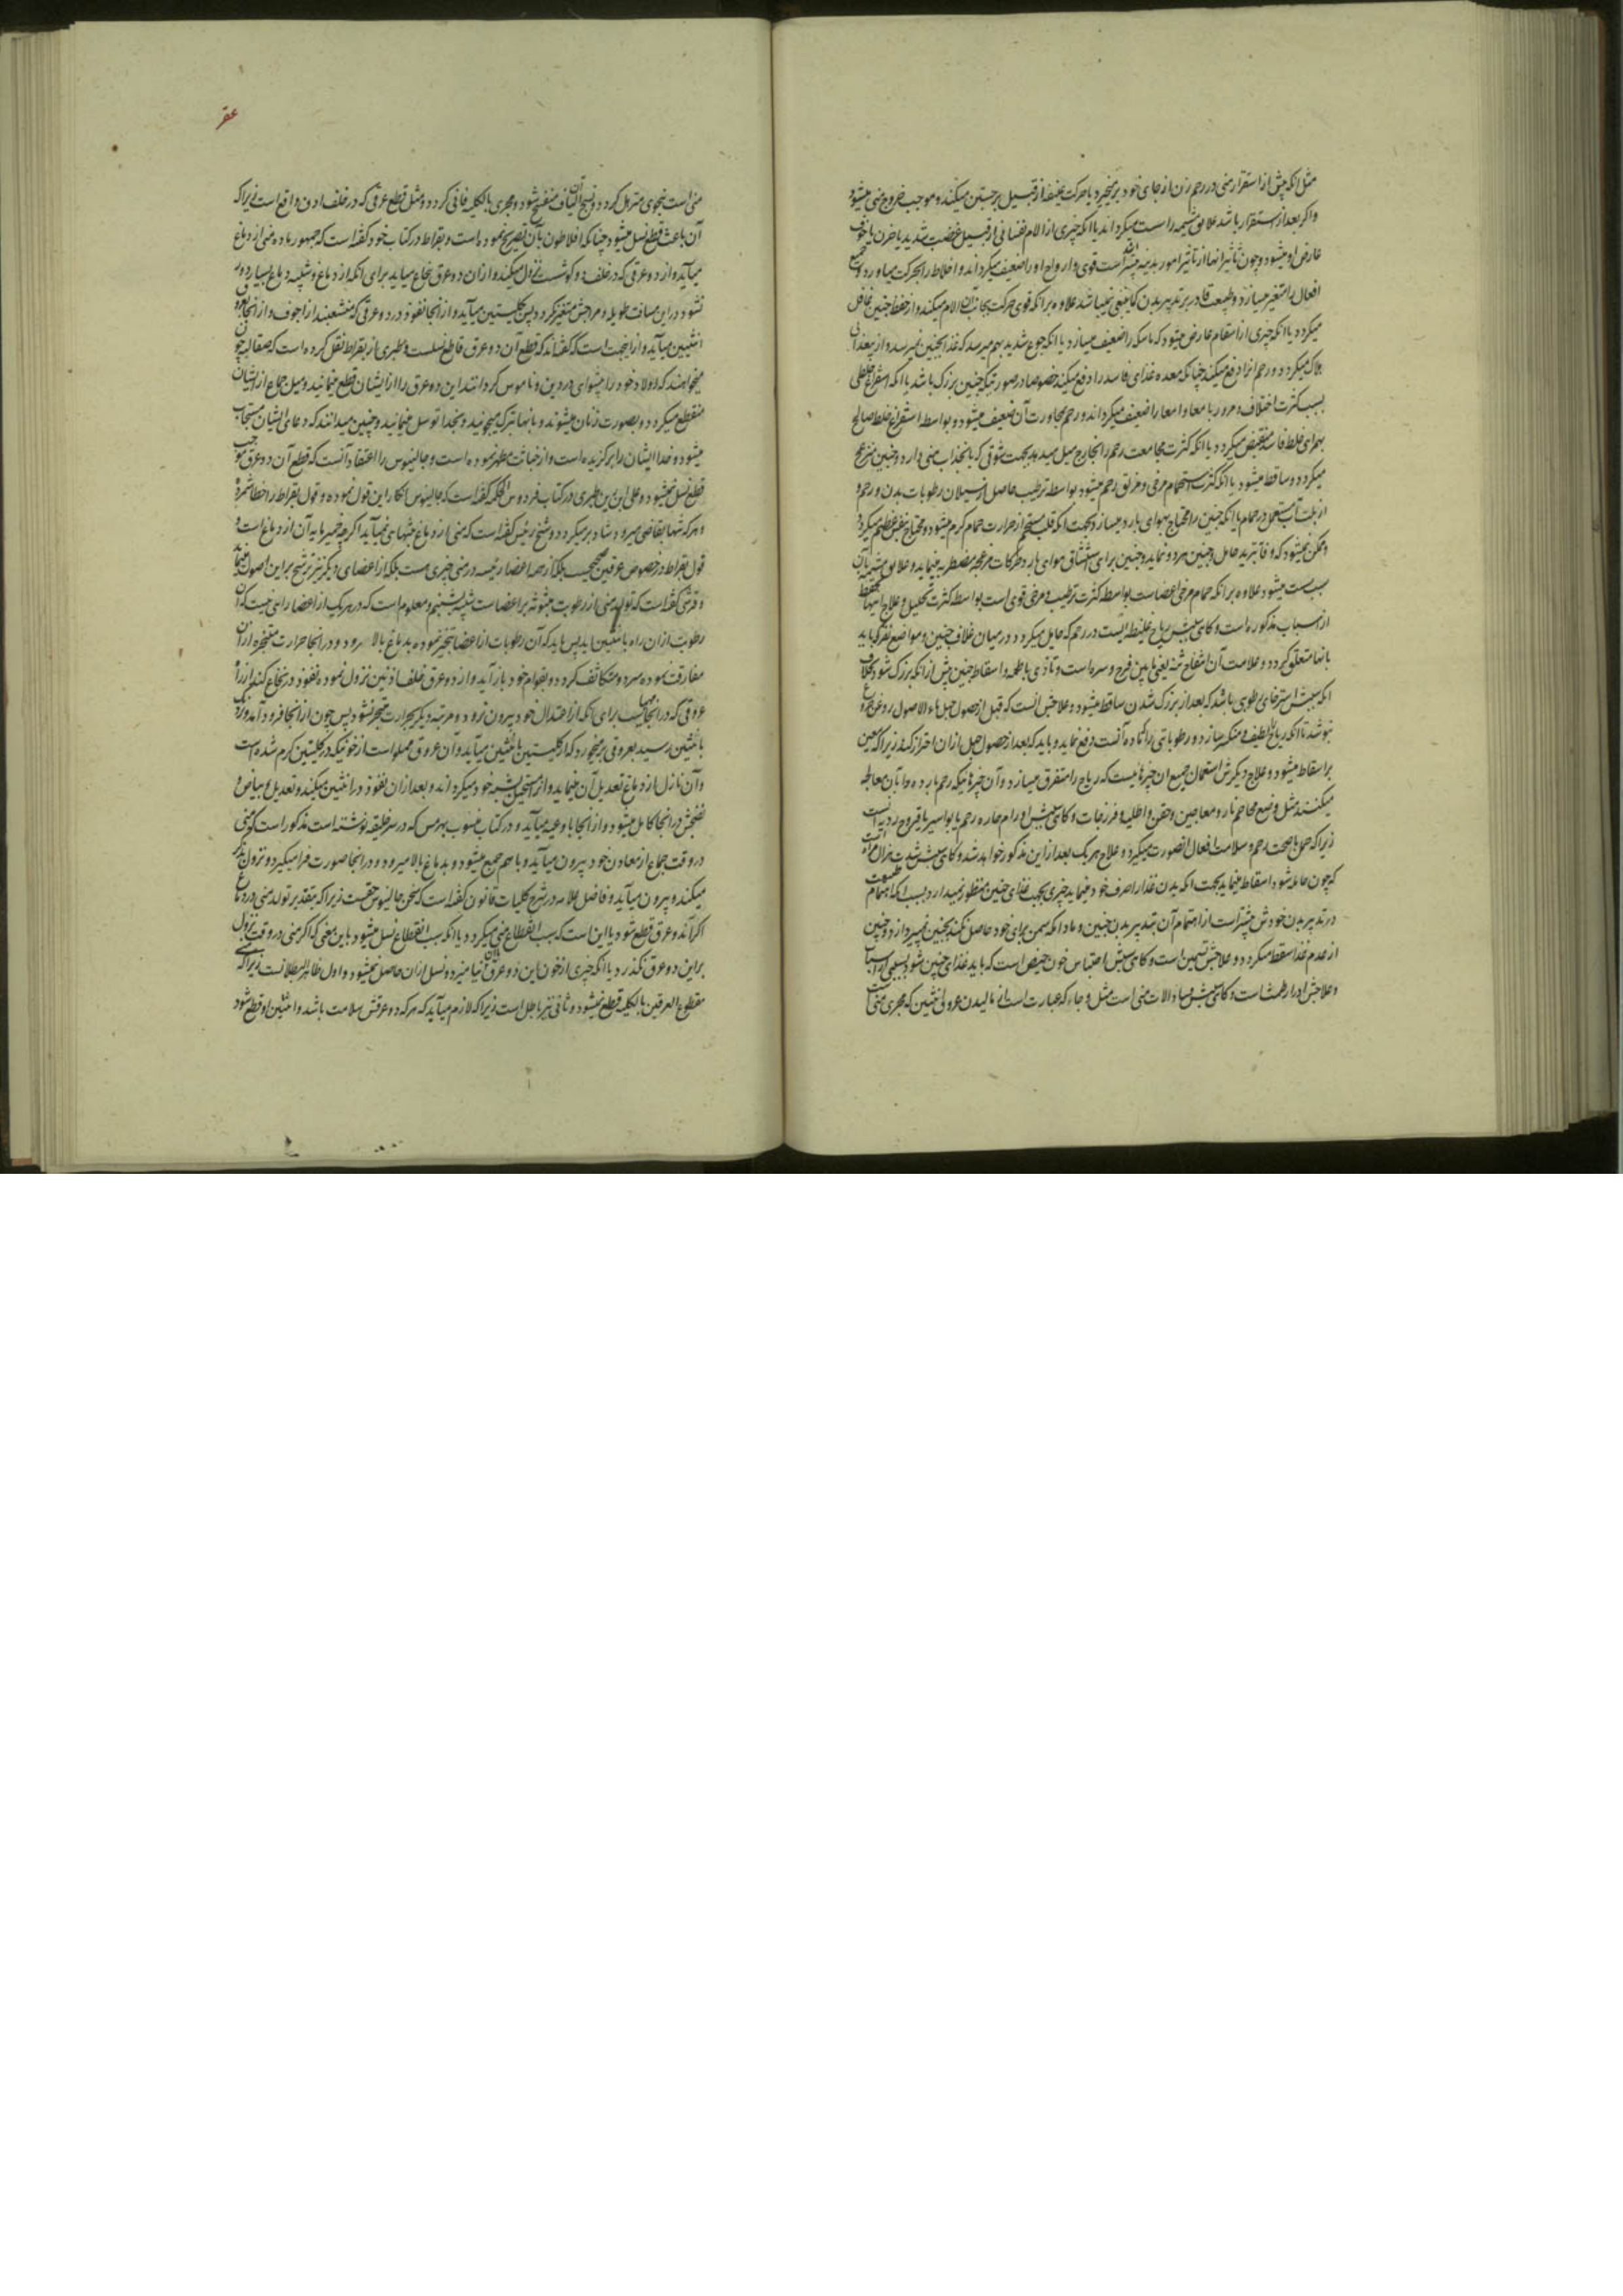 مثل انکه پیش از استقرار منی در رحم زن از جای خود برمیخیزد یا حرکت عنیفه از قبیل برجستن میکند و موجب خروج منی میشود
و اگر بعد از استقرار باشد علایق مشیمه را سست میگرداند یا انکه چیزی از الام نفسانی از قبیل غضب شدید یا حزن یا خوف
عارض او میشود و چون تأثیر انها از تأثیر امور بدنیه بیشتر است قوی و ارواح او را ضعیف میگرداند و اخلاط را بحرکت میاورد و جمیع
افعال را متغیر میسازد و طبیعت قادر بر تدبیر بدن کما ینبغی نمیباشد علاوه بر انکه قوی حرکت بجانب آن الام میکنند و از حفظ جنین غافل
میگردد یا انکه چیزی از اسقام عارض میشود که ماسکه را ضعیف میسازد یا انکه جوع شدید بهم میرسد که غذا بجنین نمیرسد و از بیغذائی
هلاک میگردد و رحم انرا دفع میکند چنانکه معده غذای فاسد را دفع میکند خصوصا در صورتیکه جنین بزرگ باشد یا انکه استفراغ خلطی
بسبب کثرت اختلاف و مرور با معا و امعا را ضعیف میگرداند و رحم بمجاورت آن ضعیف میشود و بواسطه استفراغ خلط صالح
بهمرای خلط فاسد منقبض میگردد یا انکه کثرت مجامعت رحم را بخارج میل میدهد بجهت شوقی که بانجذاب منی دارد و جنین منزعج
میگردد و ساقط میشود یا انکه کثرت استحمام مرخی و مزلق رحم میشود بواسطه ترطیب حاصل از سیلان رطوبات بدن و رحم و
از بلت آب مستعمل در حمام یا انکه جنین را محتاج بهوای بارد میسازد بجهت انکه قلب مستحم از حرارت حمام گرم میشود و محتاج بتنفس عظیم میگردد
و ممکن نمیشود که وفا بتبرید حامل و جنین هر دو نماید و جنین برای استنشاق هوای بارد حرکات مزعجه مضطربه مینماید و علایق مشیمه بآن
سبب سست میشود علاوه بر انکه حمام مرخی اعضاست بواسطه کثرت ترطیب و مرخی قوی است بواسطه کثرت تحلیل و علاج اینها تحفظ
از اسباب مذکوره است و گاهی سببش ریاح غلیظه ایست در رحم که حایل میگردد در میان غلاف جنین و مواضع نقر که باید
بانها متعلق گردد و علامت آن انتفاخ ثنه یعنی مابین فرج و سره است و تأذی باطعمه و اسقاط جنین پیش از انکه بزرگ شود بخلاف
انکه سببش استرخای رطوبی باشد که بعد از بزرگ شدن ساقط میشود و علاجش انست که قبل از حصول حبل ماء الاصول و روغن بیدانجیر
بنوشد تا انکه ریاح لطیف و منکسر سازد و رطوباتی را که ماده آنست دفع نماید و باید که بعد از حصول حبل از ان احتراز کند زیرا که معین
بر اسقاط میشود و علاج دیگرش استعمال جمیع ان چیزهائیست که ریاح را متفرق میسازد و آن چیزهائیکه رحم بارده را بآن معالجه
میکنند مثل وضع محاجم نار و معاجین و حقن و اطلیه و فرزجات و گاهی سببش اورام حاره رحم یا بواسیر یا قروح ردیه است
زیرا که حمل بصحت رحم و سلامت افعال انصورت میگیرد و علاج هر یک بعد از این مذکور خواهد شد و گاهی سببش شدت هزال مرأه است
که چون حامله شود اسقاط مینماید بجهت انکه بدن غذا را صرف خود مینماید و چیزی بجهت غذای جنین منظور نمیدارد بسبب انکه اهتمام طبیعت
در تدبیر بدن خودش بیشتر است از اهتمام آن بتدبیر بدن جنین و مادام که سمن برای خود حاصل نکند بجنین نمیپردازد و جنین
از عدم غذا سقط میگردد و علاجش تسمین است و گاهی سببش احتباس خون حیض است که باید غذای جنین شود بسببی از اسباب
و علاجش ادرار طمث است و گاهی سببش فساد الات منی است مثل وجاء که عبارت است از مالیدن عروق انثیین که مجری منی است
عقر
منی است بنحوی که متزلزل گردد و نسج الیاف آن منفسخ شود و مجری بالکلیه فانی گردد و مثل قطع عرقی که در خلف اذن واقع است زیرا که
آن باعث قطع نسل میشود چنانکه افلاطون بآن تصریح نموده است و بقراط در کتاب خود گفته است که جمهور ماده منی از دماغ
میآید و از دو عرقی که در خلف دو گوشست نزول میکند و از ان دو عرق بنخاع میآید برای انکه از دماغ و شبیه دماغ بسیار دور
نشود در این مسافت طویله و مزاجش متغیر نگردد و پس بکلیتین میآید و از انجا نفوذ در دو عرقی که منشعبند از اجوف و از انجا بعروق
انثیین میآید و از اینجهت است که گفته‌اند که قطع آن دو عرق قاطع نسلست و طبری از بقراط نقل کرده است که صقالبه چون
میخواهند که اولاد خود را پیشوای در دین و ناموس گردانند این دو عرق را از ایشان قطع مینمایند و میل جماع از ایشان
منقطع میگردد و بصورت زنان میشوند و بانها تبرک میجویند و بخدا توسل مینمایند و چنین میدانند که دعای ایشان مستجاب
میشود و خدا ایشان را برگزیده است و از خباثت مطهر نموده است و جالینوس را اعتقاد آنست که قطع آن دو عرق موجب
قطع نسل نمیشود و علی ابن ربن طبری در کتاب فردوس الحکمه گفته است که جالینوس انکار این قول نموده و قول بقراط را خطا شمرده
و هر که تنها بقاضی میرود شاد بر میگردد و شیخ رئیس گفته است که منی از دماغ بتنهائی نمیآید اگرچه خمیر مایه آن از دماغ است و
قول بقراط در خصوص عرقین صحیحست بلکه از همه اعضا رئیسه در منی چیزی هست بلکه از اعضای دیگر نیز ترشح بر این اصول مینماید
و قرشی گفته است که تولید منی از رطوبت مبثوثه بر اعضاست شبیه بشبنم و معلوم است که در هر یک از اعضا راهی نیست که آن
رطوبت از ان راه بانثیین اید پس باید که آن رطوبات از اعضا تبخیر نموده بدماغ بالا رود و در انجا حرارت مبخره از ان
مفارقت نموده سرد و متکاثف گردد و بقوام خود باز آید و از دو عرق خلف اذنین نزول نموده نفوذ در نخاع کند از راه
عروقی که در انجاست برای انکه از اعتدال خود بیرون نرود و مرتبه دیگر بحرارت متبخر نشود پس چون از انجا فرود آمد و نزدیک
بانثیین رسید بعروقی بر میخورد که از کلیتین بانثیین میآید و آن عروق مملو است از خونیکه در کلیتین گرم شده است
و آن نازل از دماغ تعدیل آن مینماید و از مستحیل بشبیه خود میگرداند و بعد از ان نفوذ در انثیین میکند و تعدیل و بیاض و
نضجش در انجا کامل میشود و از انجا باوعیه میآید و در کتاب منسوب بهرمس که در سر خلیقه نوشته است مذکور است که منی
در وقت جماع از معادن خود بیرون میآید و باهم جمع میشود و بدماغ بالا میرود و در انجا صورت فرا میگیرد و نزول بذکر
میکند و بیرون میآید و فاضل علامه در شرح کلیات قانون گفته است که سخن جالینوس حقست زیرا که بتقدیر تولد منی در دماغ
اگر آن دو عرق قطع شود یا این است که سبب انقطاع منی میگردد یا انکه سبب انقطاع نسل میشود باین معنی که اگر منی در وقت نزول
براین دو عرق نگذرد یا انکه چیزی از خون باین دو عرق بآن نیامیزد و نسل از ان حاصل نمیشود و اول ظاهر البطلانست زیرا که منی
مقطوع العرقین بالکلیه قطع نمیشود و ثانی نیز باطل است زیرا که لازم میآید که هر که دو عرقش سلامت باشد و انثیین او قطع شود